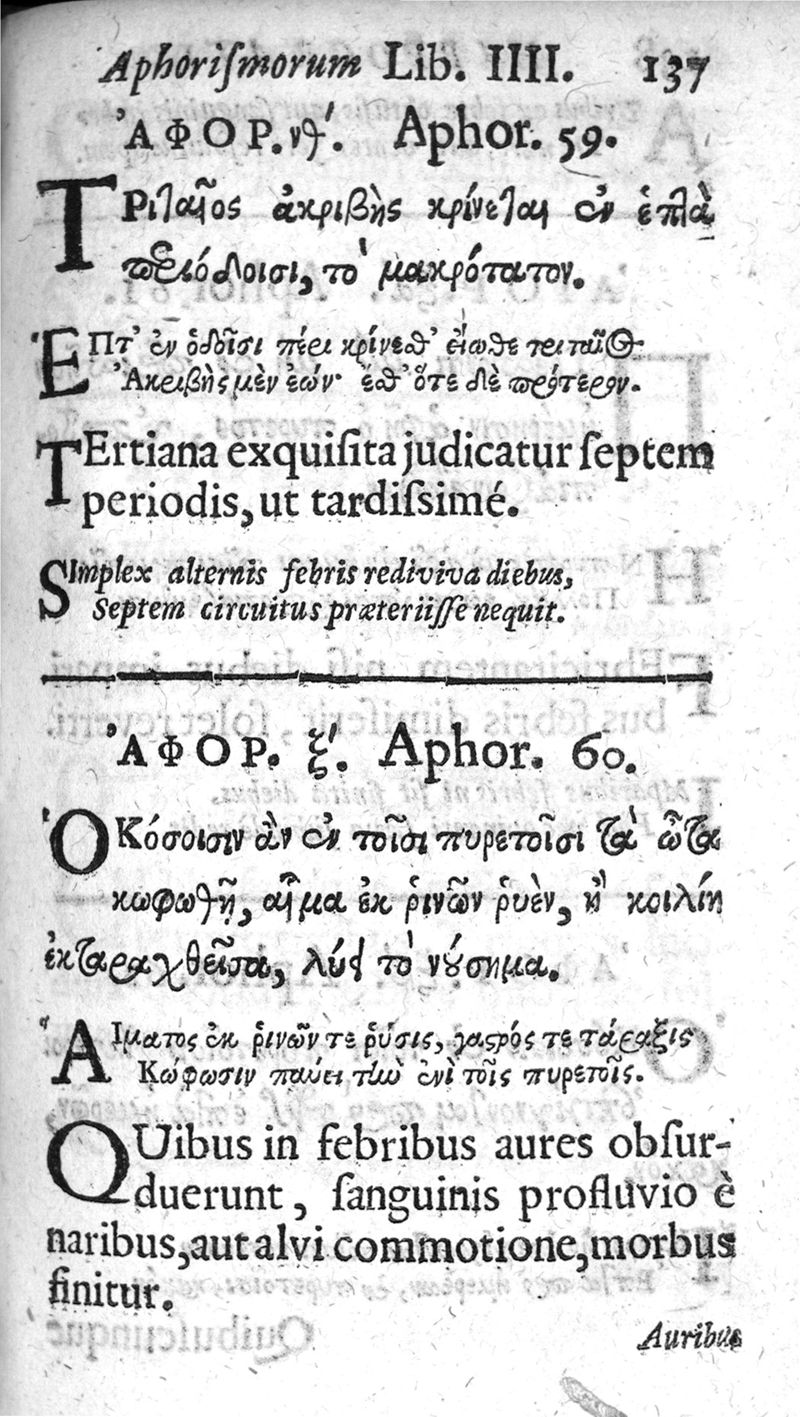 Aphoriſmorum Lib. IIII. 137
ἈΦΟΡ. νθ'. Aphor. 59.
ΤΡιταῖος ἀκριβὴς κρίνεται ἐν ἑπτὰ
περιόδοισι, τὸ μακρότατον.
ἙΠτ' ἐν ὁδοῖσι πέρι κρίνεσθ' εἴωθε τριταῖος
Ἀκριβὴς μὲν ἐών· ἔσθ' ὅτε δὲ πρότερον.
TErtiana exquiſita judicatur ſeptem
periodis, ut tardiſsimé.
SImplex alternis febris rediviva diebus,
Septem circuitus præteriiſſe nequit.
ἈΦΟΡ. ξ'. Aphor. 60.
ὉΚόσοισιν ἂν ἐν τοῖσι πυρετοῖσι τὰ ὦτα
κωφωθῇ, αἷμα ἐκ ῥινῶν ῥυὲν, ἢ κοιλίη
ἐκταραχθεῖσα, λύει τὸ νούσημα.
ἍΙματος ἐκ ῥινῶν τε ῥύσις, γαστρός τε τάραξις
Κώφωσιν παύει τὴν ἐνὶ τοῖς πυρετοῖς.
QUibus in febribus aures obſur-
duerunt, ſanguinis profluvio è
naribus, aut alvi commotione, morbus
finitur.
Auribus